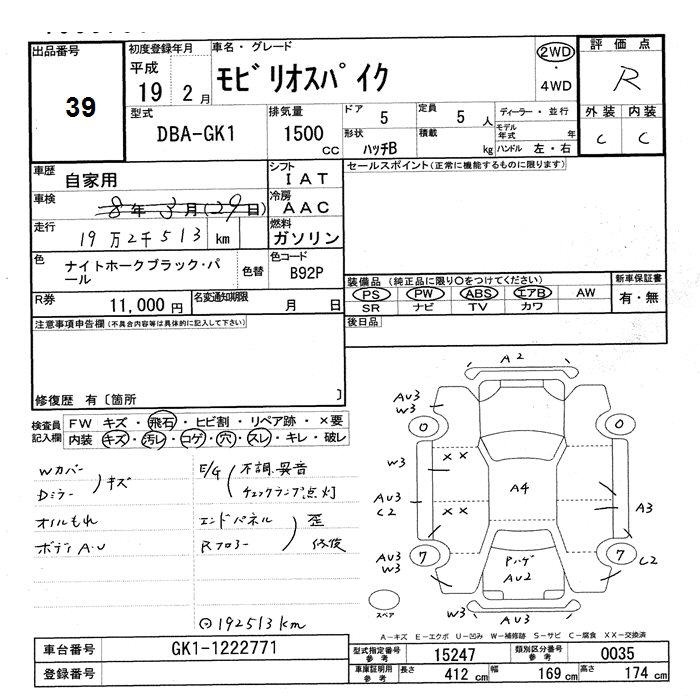 出品番号
39
初度登録年月
平成
19 2月
車名・グレード
モビリオスパイク
2WD
・
4WD
評価点
R
外装 内装
C C
型式
DBA-GK1
排気量
1500 CC
ドア
5
定員
5 人
形状
ハッチB
積載
kg
ディーラー・並行
モデル年式 年
ハンドル 左・右
車歴
自家用
シフト
IAT
車検
8年3月(29日)
冷房
AAC
走行
19万2千513 km
燃料
ガソリン
色
ナイトホークブラック・パール
色替
色コード
B92P
R券
11,000円
名変通知期限
月 日
セールスポイント(正常に機能するものに限ります)
装備品(純正品に限り○をつけてください)
PS PW ABS エアB AW
SR ナビ TV カワ
新車保証書
有・無
後日品
注意事項申告欄(不具合内容等は具体的に記入して下さい)
修復歴 有〔箇所 〕
検査員記入欄
FW キズ・飛石・ヒビ割・リペア跡・×要
内装 キズ・汚レ・コゲ・穴・スレ・キレ・破レ
Wカバー
Dミラー
キズ
オイルもれ
ボディA・U
E/G
不調.異音
チェックランプ点灯
エンドパネル
Rフロアー
歪
修復
⊙192513km
A2
AU3
W3
0
0
W3
××
A4
AU3
C2
××
A3
AU3
W3
7
7
C2
Pハゲ
AU2
スペア
W3
AU3
A―キズ E―エクボ U―凹み W―補修跡 S―サビ C―腐食 XX―交換済
車台番号
GK1-1222771
登録番号
型式指定番号
参考
15247
類別区分番号
参考
0035
車庫証明用
参考
長さ
412 cm
幅
169 cm
高さ
174 cm